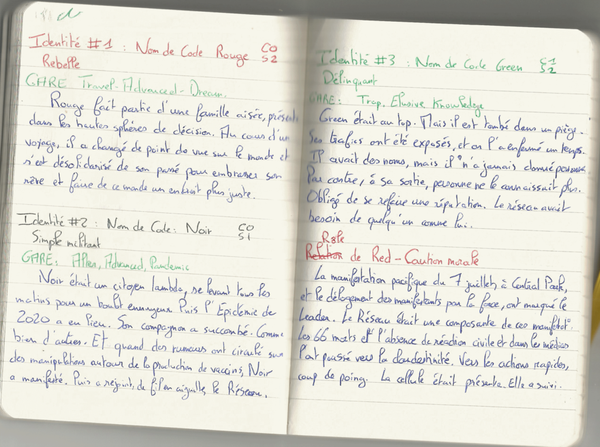 Identité #1 : Nom de Code Rouge C0
Rebelle S2
GARE Travel-Advanced-Dream.
Rouge fait partie d'une famille aisée, présente
dans les hautes sphères de décision. Au cours d'un
voyage, il a changé de point de vue sur le monde et
s'est désolidarisé de son passé pour embrasser son
rêve et faire de ce monde un endroit plus juste.
Identité #2 : Nom de Code : Noir C0
Simple militant S1
GARE : After, Advanced, Pandemic
Noir était un citoyen lambda, se levant tous les
matins pour un boulot ennuyeux. Puis l'Epidémie de
2020 a eu lieu. Son compagnon a succombé. Comme
bien d'autres. Et quand des rumeurs ont circulé sur
des manipulations autour de la production de vaccins, Noir
a manifesté. Puis a rejoint, de fil en aiguille, le Réseau.
Identité #3 : Nom de Code Green C1
Délinquant S2
GARE : Trap, Elusive Knowledge
Green était au top. Mais il est tombé dans un piège.
Ses trafics ont été exposés, et on l'a enfermé un temps.
Il avait des noms, mais il n'a jamais donné personne.
Par contre, à sa sortie, personne ne le connaissait plus.
Obligé de se refaire une réputation. Le réseau avait
besoin de quelqu'un comme lui.
Rôle
Relation de Red - Caution morale
La manifestation pacifique du 7 juillet, à Central Park,
et le délogement des manifestants par la force, ont marqué le
Leader. Le Réseau était une composante de ces manifestat°.
Les 66 morts et l'absence de réaction civile et dans les médias
l'ont poussé vers la clandestinité. Vers les actions rapides,
coup de poing. La cellule était présente. Elle a suivi.